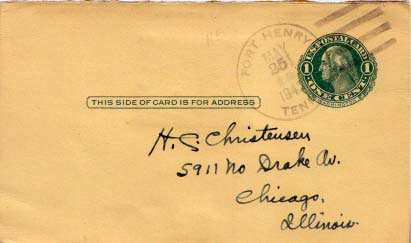 FORT HENRY
MAY
25
194
TEN
U.S. POSTAL CARD
1 1
ONE CENT
WASHINGTON
THIS SIDE OF CARD IS FOR ADDRESS
H. C. Christensen
5911 No Drake Av.
Chicago,
Illinois.